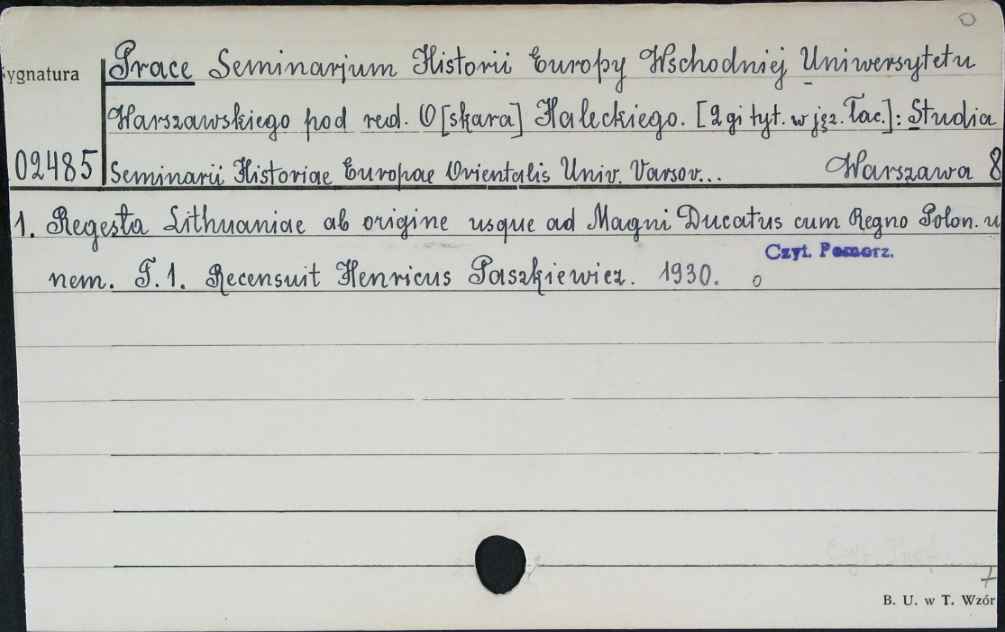 Prace Seminarjum Historii Europy Wschodniej Uniwersytetu
ygnatura
Warszawskiego pod red. O[skara] Haleckiego. [2gi tyt. w jęz. łac.]: Studia
02485 Seminarii Historiae Europae Orientalis Univ. Varsov... Warszawa 8
1. Regesta Lithuaniae ab origine usque ad Magni Ducatus cum Regno Polon. u
Czyt. Pomorz.
nem. T. 1. Recensuit Henricus Paszkiewicz. 1930.
B. U. w T. Wzór